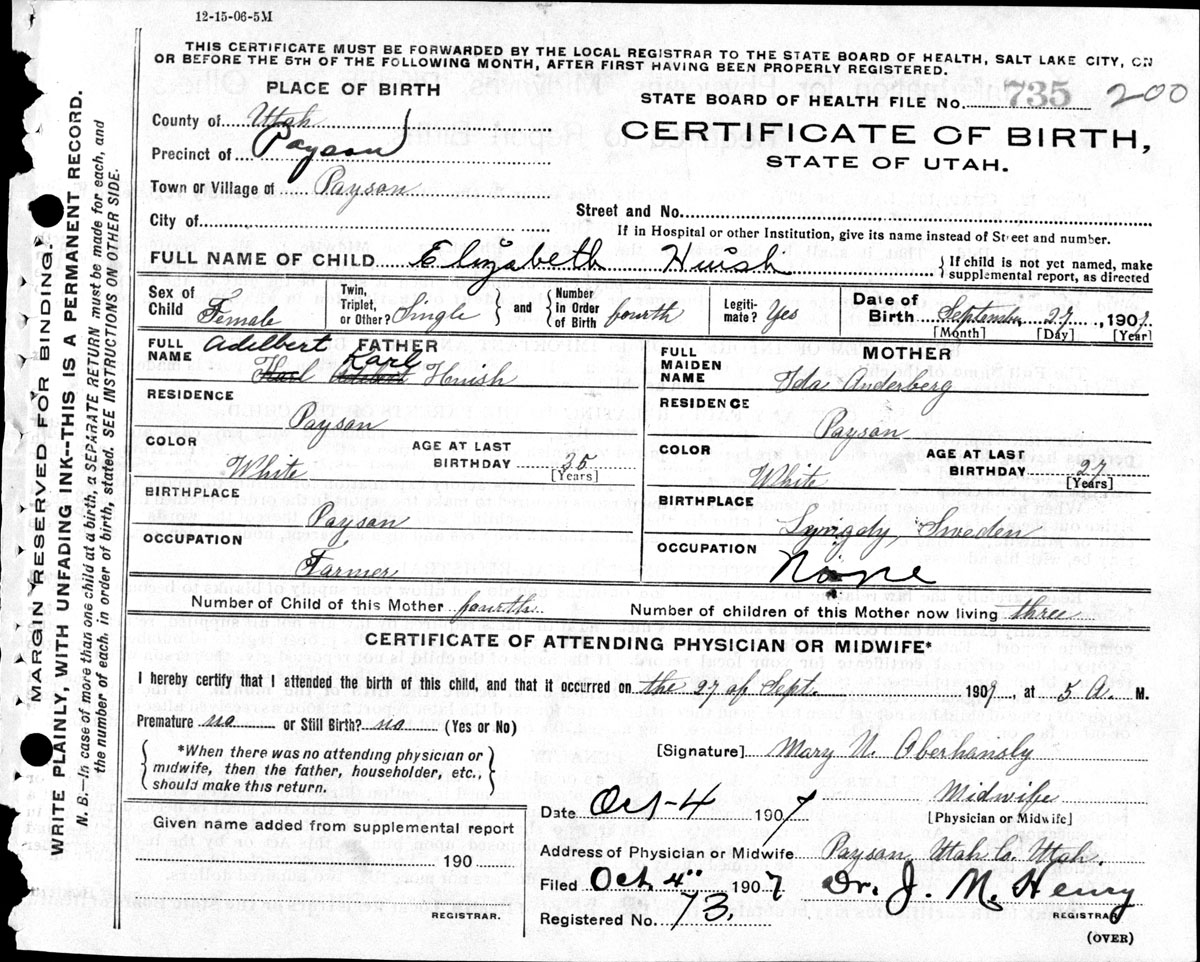 12-15-06-5M
THIS CERTIFICATE MUST BE FORWARDED BY THE LOCAL REGISTRAR TO THE STATE BOARD OF HEALTH, SALT LAKE CITY, ON
OR BEFORE THE 5TH OF THE FOLLOWING MONTH, AFTER FIRST HAVING BEEN PROPERLY REGISTERED.
PLACE OF BIRTH
STATE BOARD OF HEALTH FILE No. 735 200
County of Utah
CERTIFICATE OF BIRTH,
Precinct of Payson
STATE OF UTAH.
Town or Village of Payson
Street and No.
City of
If in Hospital or other Institution, give its name instead of Street and number.
FULL NAME OF CHILD Elizabeth Huish { If child is not yet named, make
supplemental report, as directed
Sex of Child Female
Twin, Triplet, or Other? Single } and { Number in Order of Birth fourth
Legitimate? Yes
Date of Birth September 27, 1907.
[Month] [Day] [Year]
FATHER
FULL NAME Adelbert Karl Huish
RESIDENCE
Payson
COLOR White
AGE AT LAST BIRTHDAY 35
[Years]
BIRTHPLACE
Payson
OCCUPATION
Farmer
MOTHER
FULL MAIDEN NAME Ida Anderberg
RESIDENCE
Payson
COLOR White
AGE AT LAST BIRTHDAY 27
[Years]
BIRTHPLACE
Sweden
OCCUPATION
None
Number of Child of this Mother fourth
Number of children of this Mother now living three
CERTIFICATE OF ATTENDING PHYSICIAN OR MIDWIFE*
I hereby certify that I attended the birth of this child, and that it occurred on the 27 of Sept. 1907, at 5 A. M.
Premature no or Still Birth? no (Yes or No)
{ *When there was no attending physician or
midwife, then the father, householder, etc.,
should make this return. }
[Signature] Mary U. Oberhansly
Midwife
[Physician or Midwife]
Date Oct-4 1907
Given name added from supplemental report
190
REGISTRAR.
Address of Physician or Midwife Payson, Utah Co. Utah.
Filed Oct. 4" 1907 Dr. J. M. Henry
REGISTRAR
Registered No. 73.
(OVER)
MARGIN RESERVED FOR BINDING.
WRITE PLAINLY, WITH UNFADING INK--THIS IS A PERMANENT RECORD.
N. B.—In case of more than one child at a birth, a SEPARATE RETURN must be made for each, and
the number of each, in order of birth, stated. SEE INSTRUCTIONS ON OTHER SIDE.